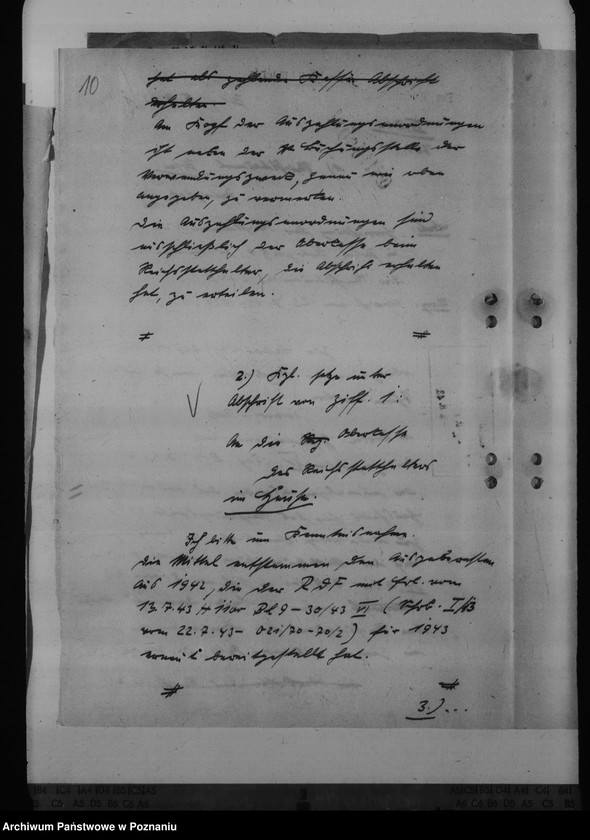 10
hat als zahlende Kasse Abschrift
erhalten
Am Kopf der Auszahlungsanordnungen
ist neben der Buchungsstelle der
Verwendungszweck, genau wie oben
angegeben, zu vermerken.
Die Auszahlungsanordnungen sind
ausschließlich der Oberkasse beim
Reichsstatthalter, die Abschrift erhalten
hat, zu erteilen.
2.) Kzl. setze unter
Abschrift von Ziff. 1:
An die Oberkasse
des Reichsstatthalters
im Hause.
Ich bitte um Kenntnisnahme.
Die Mittel entstammen den Ausgaberesten
aus 1942, die der RdF mit Erl. vom
13.7.43 - 30/43 VI (Schrb. I/13
vom 22.7.43 - 021/70-70/2) für 1943
erneut bereitgestellt hat.
3.) ...
Archiwum Państwowe w Poznaniu